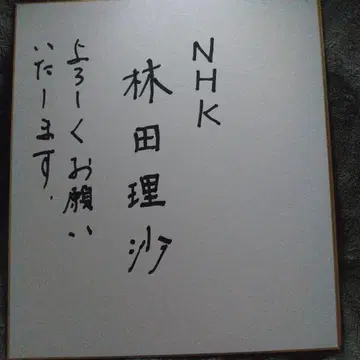 NHK
林田理沙
よろしくお願い
いたします.